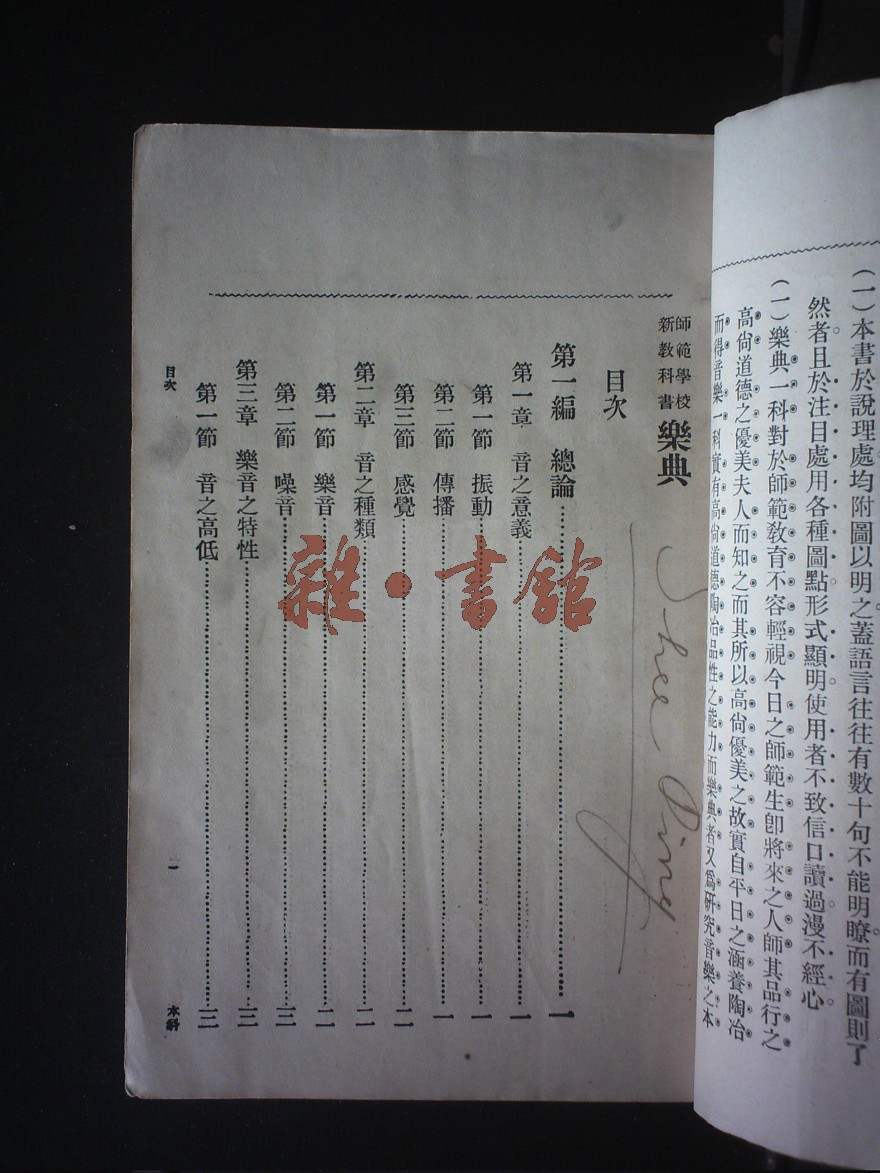 (一)本書於說理處均附圖以明之蓋語言往往有數十句不能明瞭而有圖則了
然者且於注目處用各種圖點形式顯明使用者不致信口讀過漫不經心
(一)樂典一科對於師範教育不容輕視今日之師範生卽將來之人師其品行之
高尙道德之優美夫人而知之而其所以高尙優美之故實自平日之涵養陶冶
而得音樂一科實有高尙道德陶冶品性之能力而樂典者又爲研究音樂之本
師範學校
新教科書
樂典
目次
第一編 總論 一
第一章 音之意義 一
第一節 振動 一
第二節 傳播 一
第三節 感覺 二
第二章 音之種類 二
第一節 樂音 二
第二節 噪音 三
第三章 樂音之特性 三
第一節 音之高低 三
目次
一
本科
雜·書館
Ping